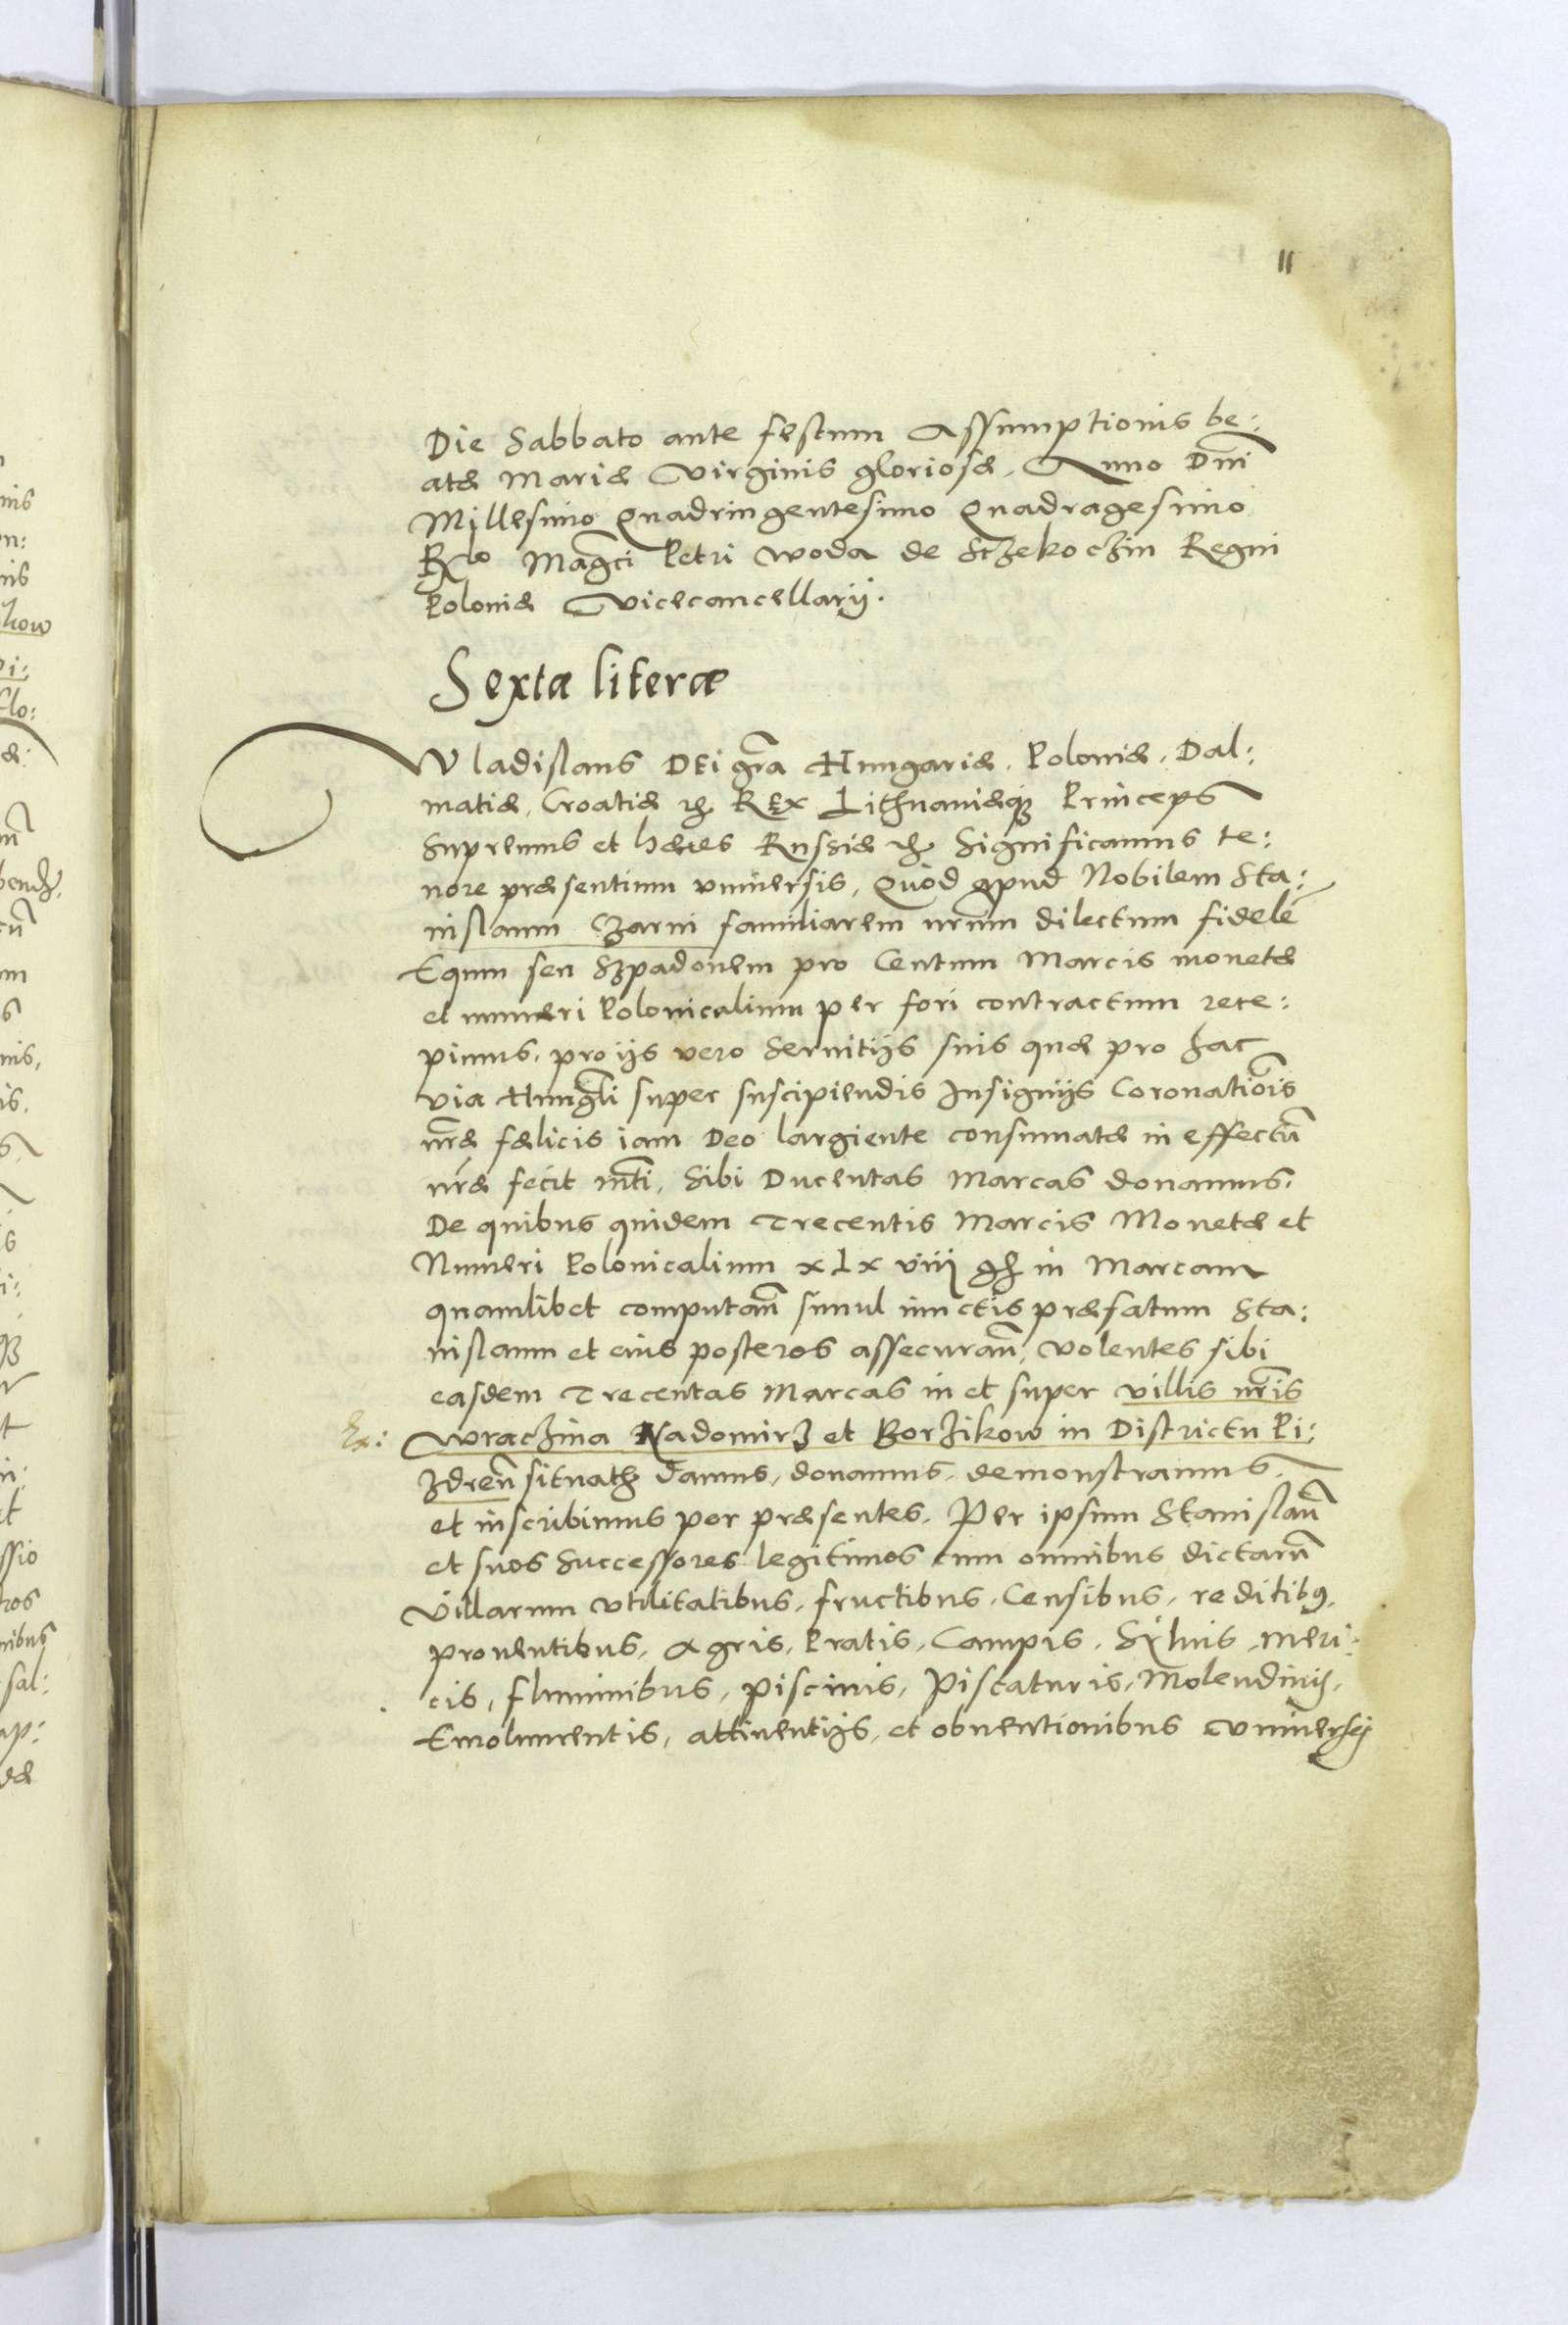 11
Die Sabbato ante festum Assumptionis be:
atæ Mariæ Virginis gloriosæ. Anno Dni
Millesimo Quadringentesimo Quadragesimo
Rlo Magci Petri Woda de Sczekoczin Regni
Poloniæ Vicecancellarij.
Sexta literæ
Wladislaus DEi gra Hungariæ, Poloniæ, Dal:
matiæ, Croatiæ etc REx Lithuaniæq; Princeps
Supremus et hæres Russiæ etc Significamus te:
nore præsentium vniuersis, Quòd apud Nobilem Sta:
nislaum Czarni familiarem nrum dilectum fidelē
Equm seu Szpadonem pro Centum Marcis monetæ
et numeri Polonicalium per fori contractum rece:
pimus, pro ijs vero Seruitijs suis quæ pro hac
via Hungali super suscipiendis Insignijs Coronatiois
nræ fælicis iam Deo largiente consumatæ in effectū
nræ fecit mti, Sibi Ducentas Marcas donamus.
De quibus quidem Trecentis Marcis Monetæ et
Numeri Polonicalium xlx viij gs in Marcam
quamlibet computan simul iunctis præfatum Sta:
nislaum et eius posteros assecuran, volentes sibi
easdem Trecentas Marcas in et super villis nris
Ex: Wraczina Nadomirz et Borzikow in Districtu Pi:
zdren situatis damus, donamus, demonstramus,
et inscribimus per præsentes. Per ipsum Stanislaū
et suos Successores legitimos cum omnibus dictarū
Villarum vtilitatibus, fructibus, Censibus, reditibus,
prouentibus, Agris, Pratis, Campis, Syluis, Meri:
cis, fluminibus, piscinis, Piscaturis, Molendinis,
Emolumentis, attinentijs, et obuentionibus vniuersis